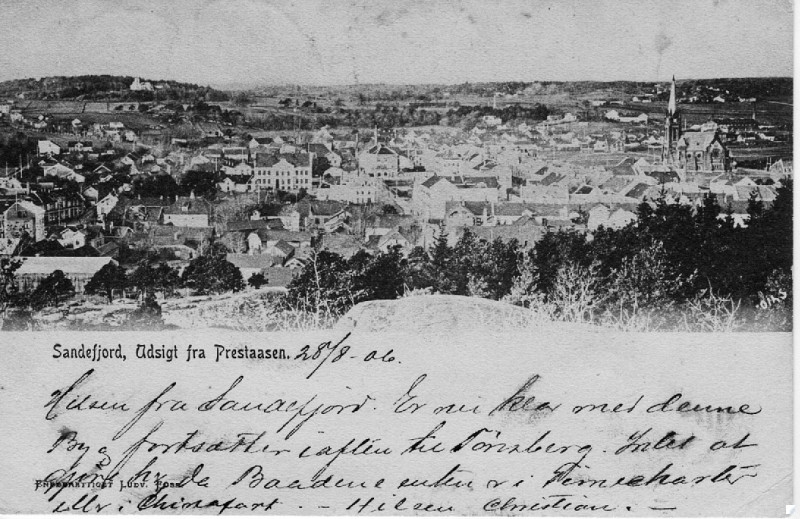 Sandefjord, Udsigt fra Prestaasen. 28/8 - 06.
Hilsen fra Sandefjord. Er nu klar med denne
By og fortsætter iaften til Tönsberg. Intet at
gjöre her da Baadene enten er i Timecharter
eller i Chinafart. - Hilsen Christian. -
Eneberettiget Ludv.